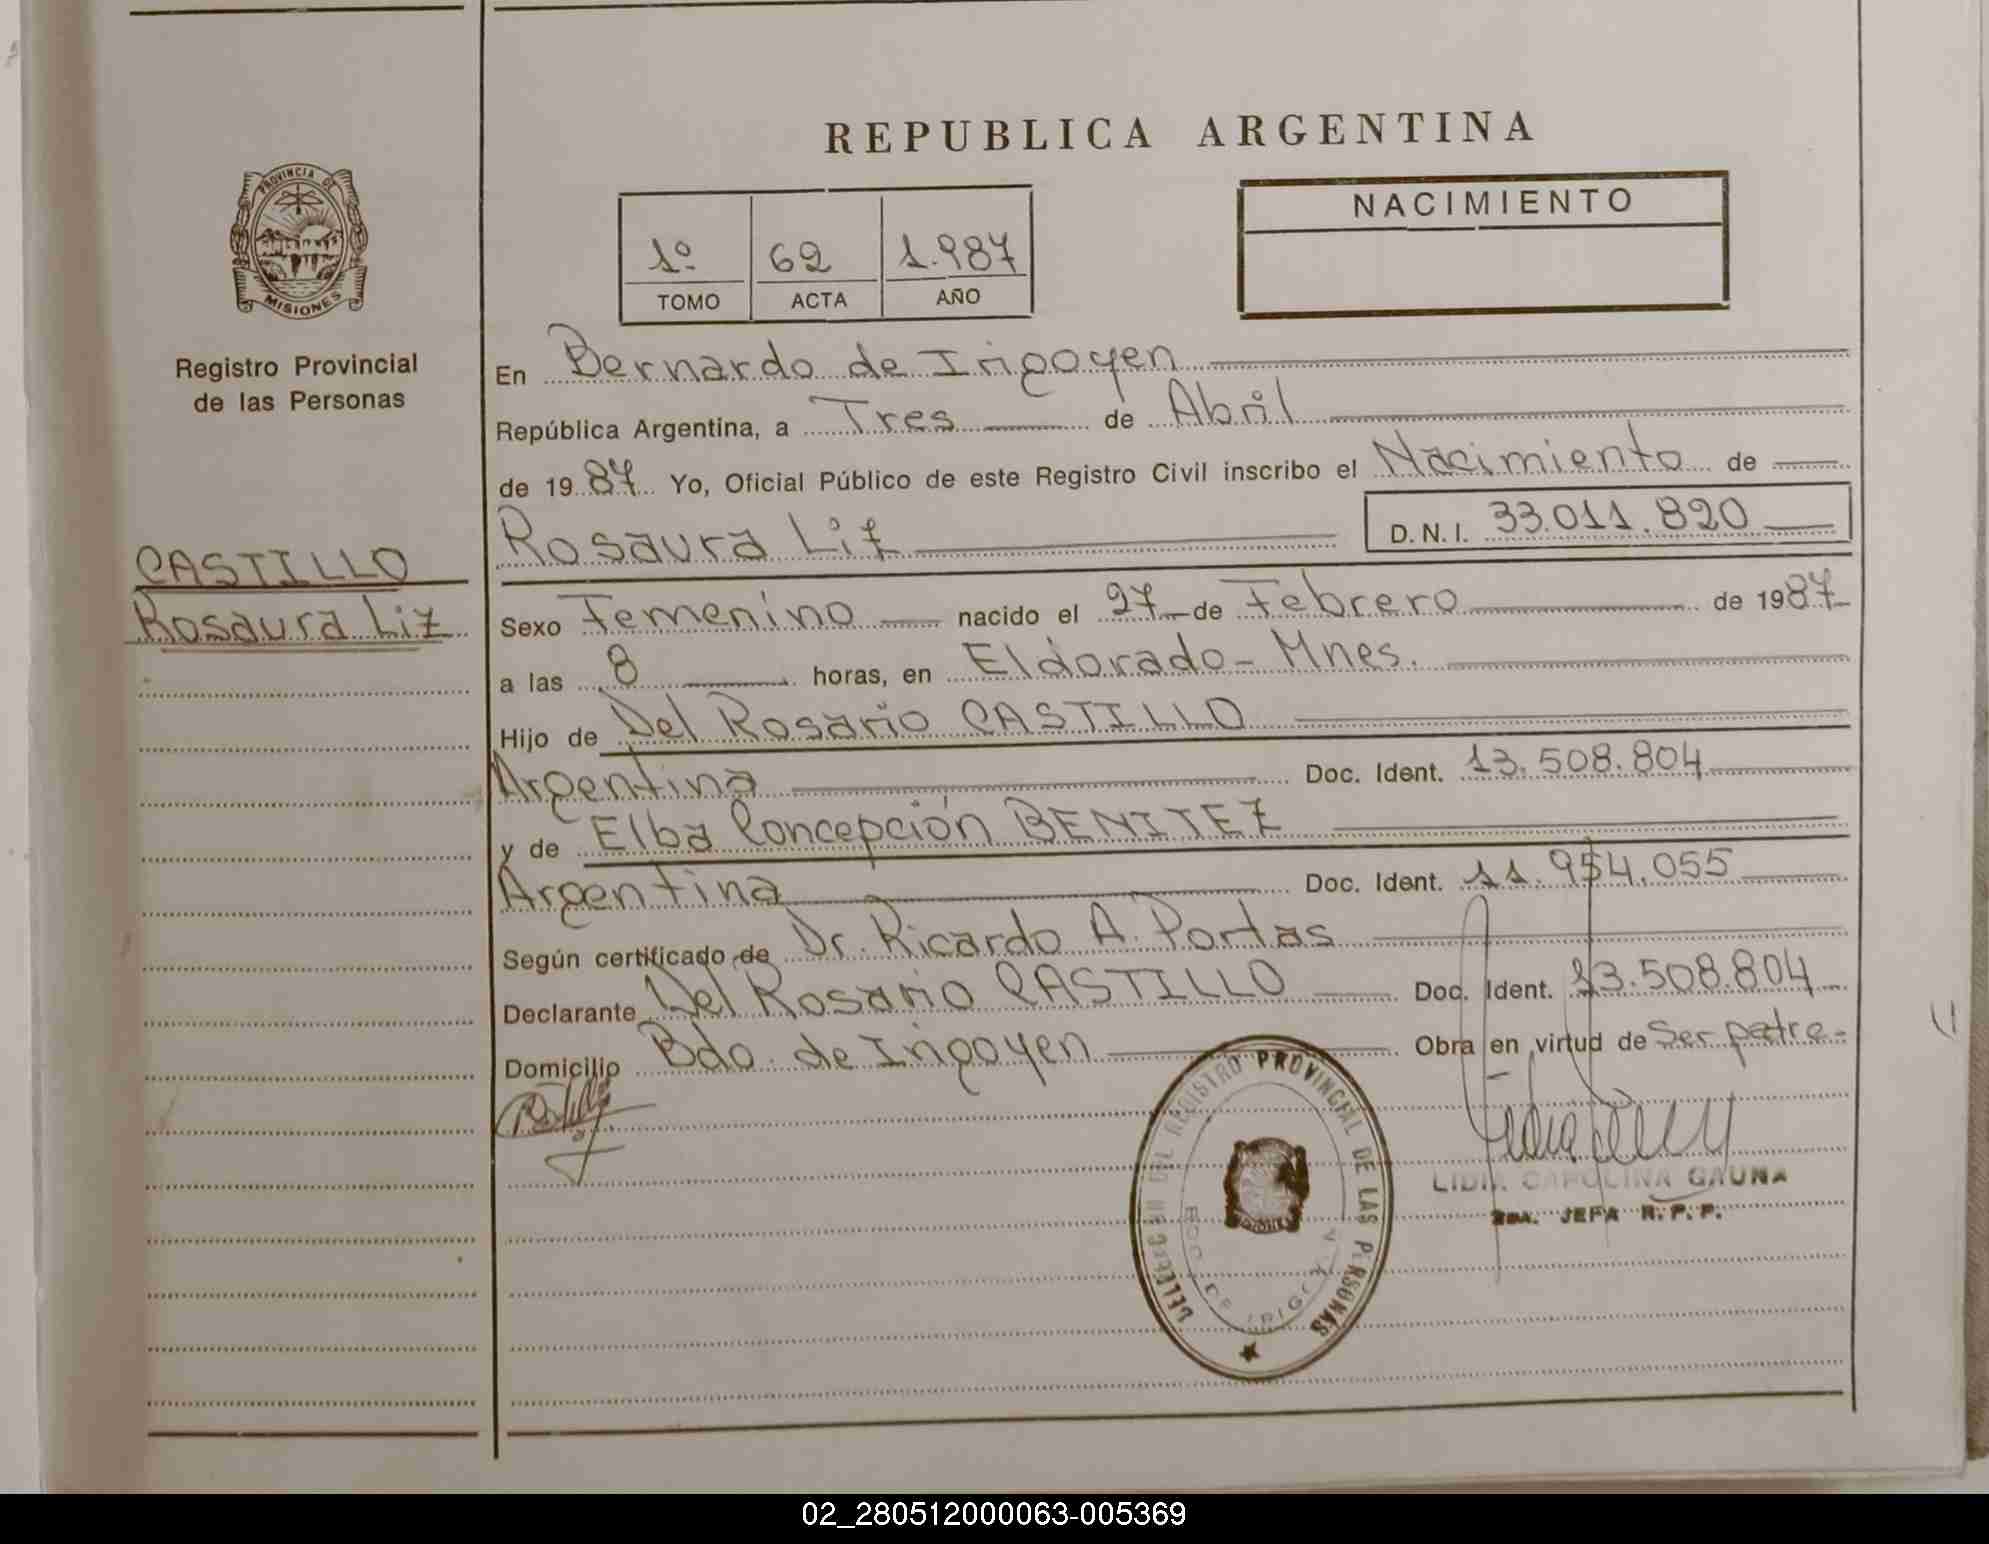 REPUBLICA ARGENTINA
PROVINCIA DE
MISIONES
Registro Provincial
de las Personas
CASTILLO
Rosaura Liz
1º 62 1.987
TOMO ACTA AÑO
NACIMIENTO
En Bernardo de Irigoyen
República Argentina, a Tres de Abril
de 1987 Yo, Oficial Público de este Registro Civil inscribo el Nacimiento de
Rosaura Liz D.N.I. 33.011.820
Sexo Femenino nacido el 27 de Febrero de 1987
a las 8 horas, en Eldorado - Mnes.
Hijo de Del Rosario CASTILLO
Argentina Doc. Ident. 13.508.804
y de Elba Concepción BENITEZ
Argentina Doc. Ident. 11.954.055
Según certificado de Dr. Ricardo A. Portas
Declarante Del Rosario CASTILLO Doc. Ident. 13.508.804
Domicilio Bdo. de Irigoyen Obra en virtud de Ser patre-
REGISTRO PROVINCIAL DE LAS PERSONAS
LIDIA CAROLINA GAUNA
JEFA R.P.P.
02_280512000063-005369